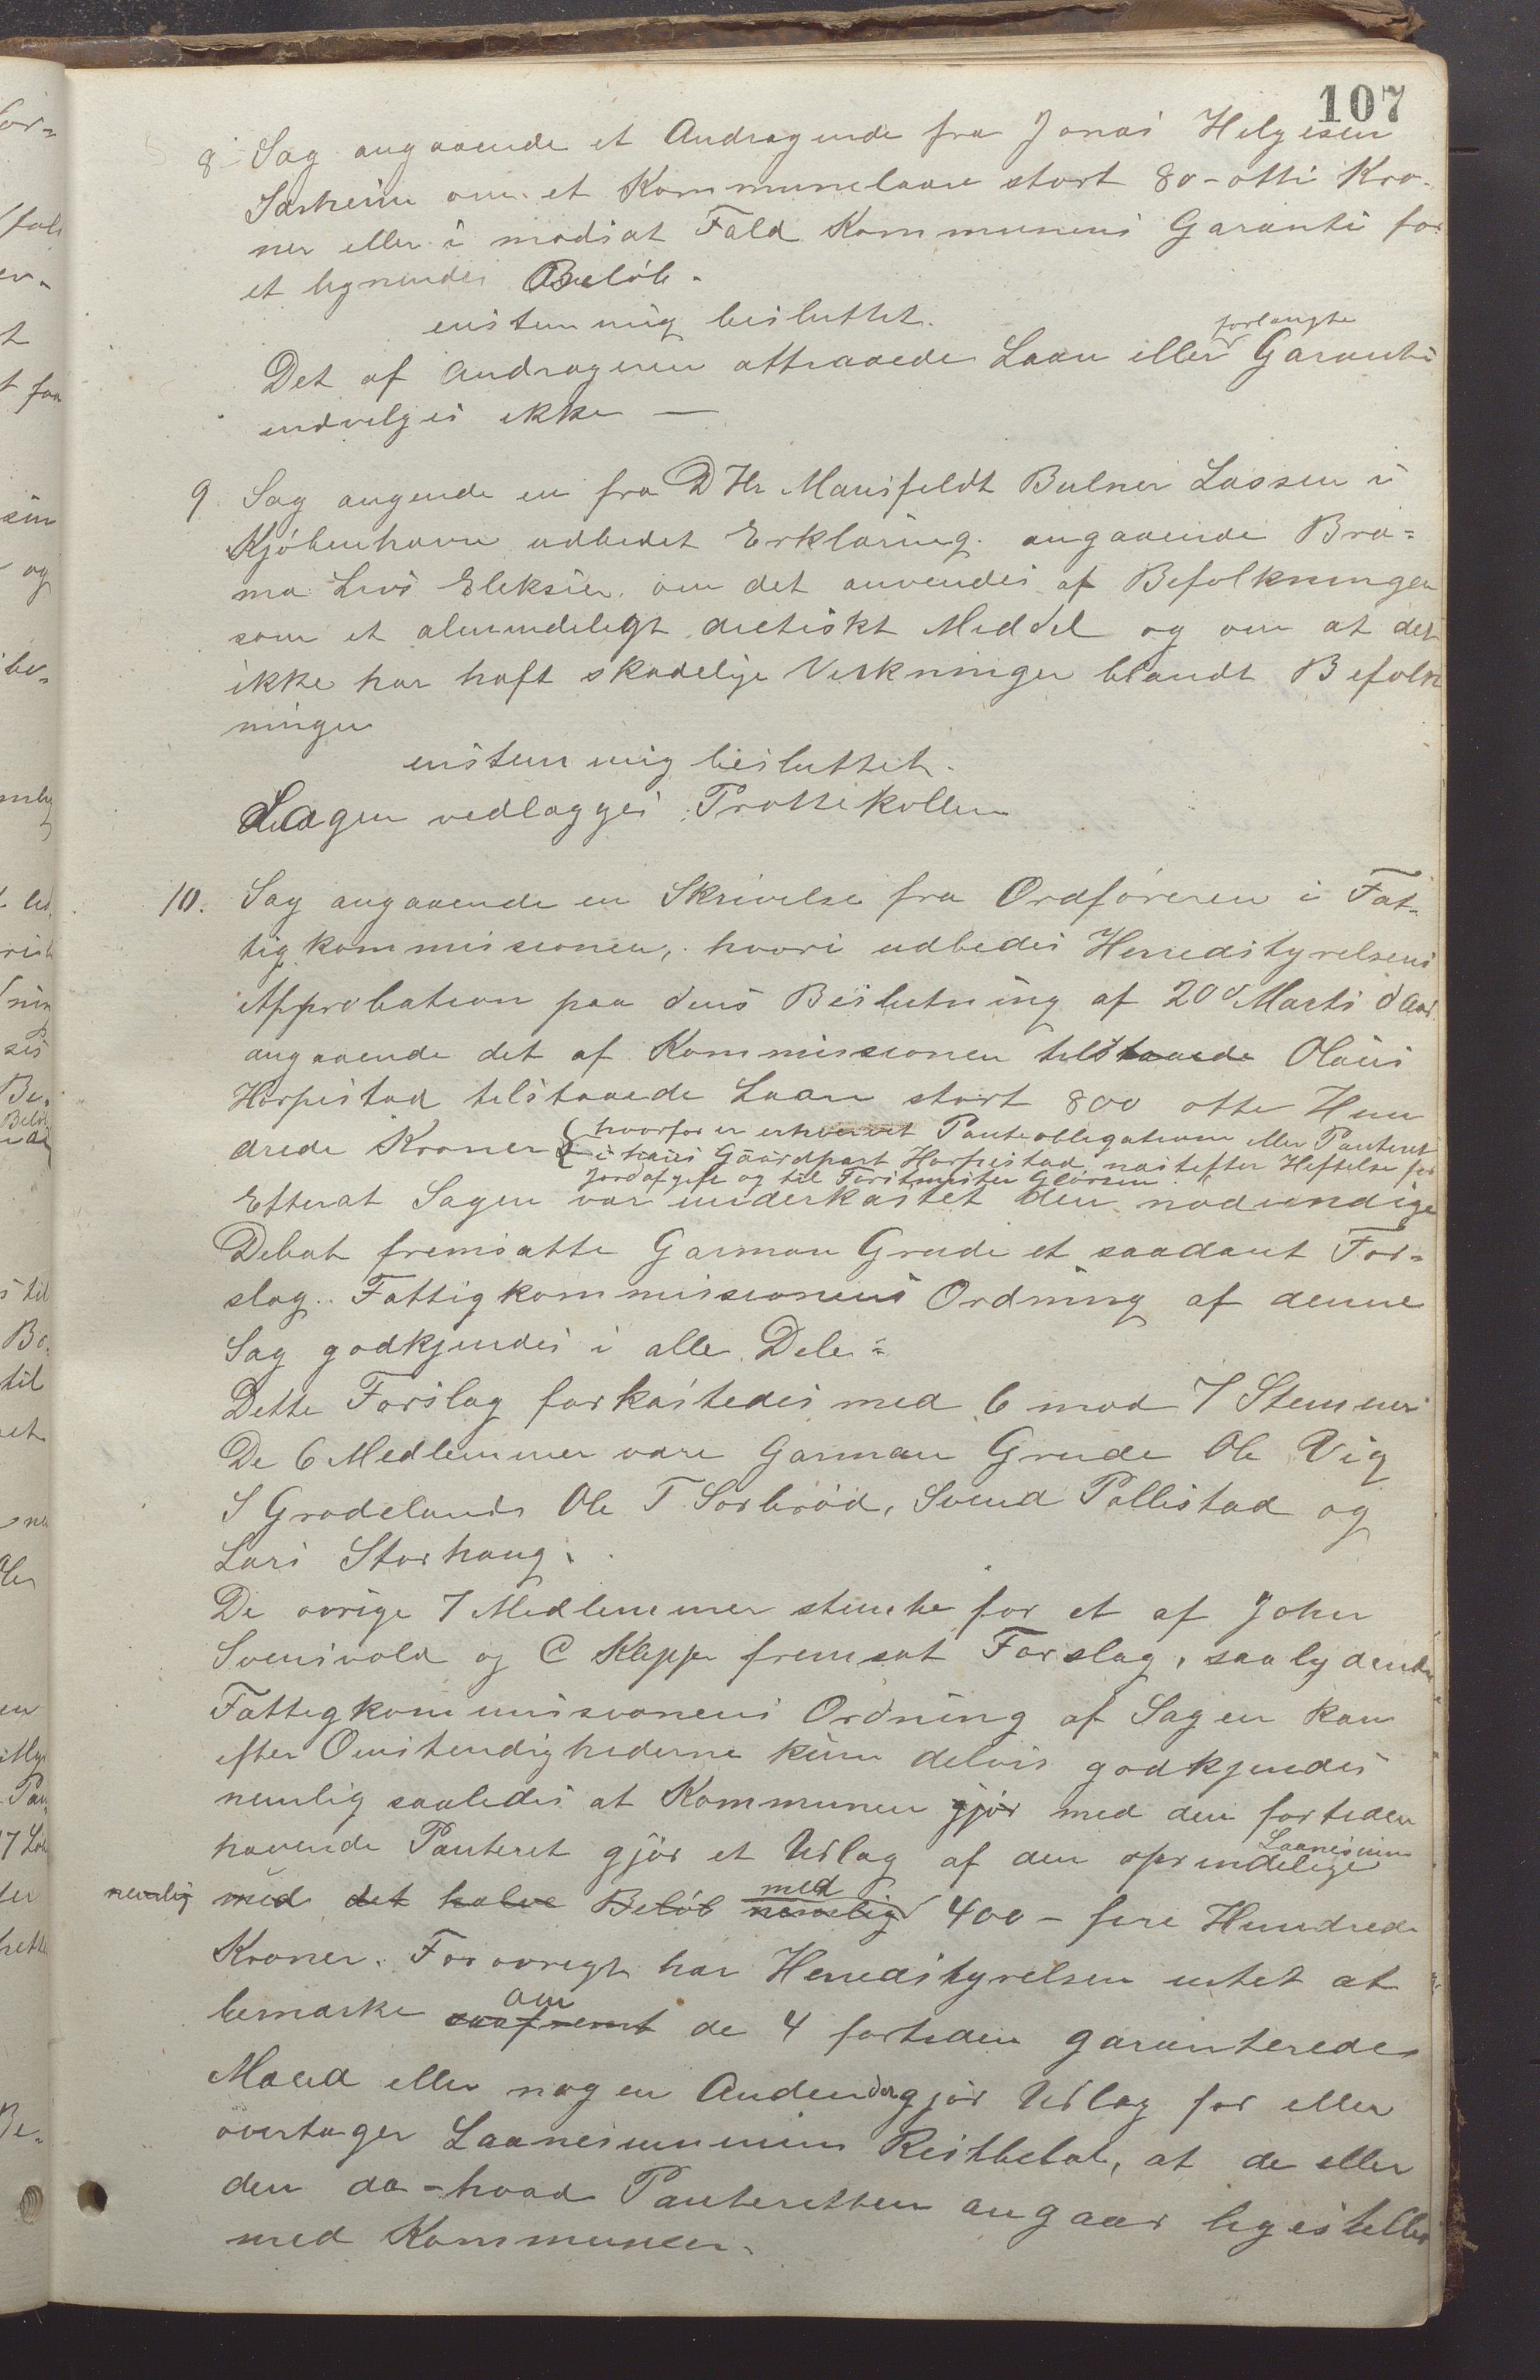 107
8 Sag angaaende et Andragende fra Jonas Helgesen
Særheim om et Kommunelaan stort 80-otti Kro-
ner eller i modsat Fald Kommunens Garanti for
et lignende Beløb.
enstemmig besluttet.
Det af Andrageren attraaede Laan eller forlangte Garanti
indvilges ikke —
9 Sag angende en fra D Hr Mansfeldt Bulner Lassen i
Kjöbenhavn udbedet Erklæring angaaende Bra=
ma Livs Eleksier om det anvendes af Befolkningen
som et almindeligt dietiskt Meddel og om at det
ikke har haft skadelige Virkninger blandt Befolk
ningen
enstemmig besluttet.
Sagen vedlægges Prottekollen
10. Sag angaaende en Skrivelse fra Ordføreren i Fat-
tigkommissionen, hvori udbedes Herredstyrelsens
Approbation paa dens Beslutning af 20de Marts d Aar
angaaende det af Kommissionen tilstaaede Olaus
Horpestad tilstaaede Laan stort 800 otte Hun
drede Kroner hvorfor er erhvervet Panteobligationen eller Panteret
i hans Gaardpart Horpestad næstefter Heftelse for
Jordafgift og til Forstmester Gløersen
Efterat Sagen var underkastet den nødvendige
Debat fremsatte Garman Grude et saadant For=
slag. Fattigkommissionens Ordning af denne
Sag godkjendes i alle Dele=
Dette Forslag forkastedes med 6 mod 7 Stemmer
De 6 Medlemmer vare Garman Grude Ole Vig
S Grødelands Ole T Sørbrød, Svend Pollestad og
Lars Storhaug.
De øvrige 7 Medlemmer stemte for et af John
Svensvold og C Klepp fremsat Forslag, saalydende
Fattigkommissionens Ordning af Sagen kan
efter Omstendighederne kun delvis godkjendes
nemlig saaledes at Kommunen gjør med den fortiden
havende Panteret gjör et Udlag af den oprindelige Laanesum
nemlig med det halve Beløb nemlig med 400 - fire Hundrede
Kroner. Forøvrigt har Herredstyrelsen intet at
bemærke saafremt om de 4 fortiden garanterede
Mænd eller nogen Anden da gjør Udlag for eller
overtager Laanesummens Restbeløb, at de eller
den da - hvad Panteretten angaar ligestilles
med Kommunen.